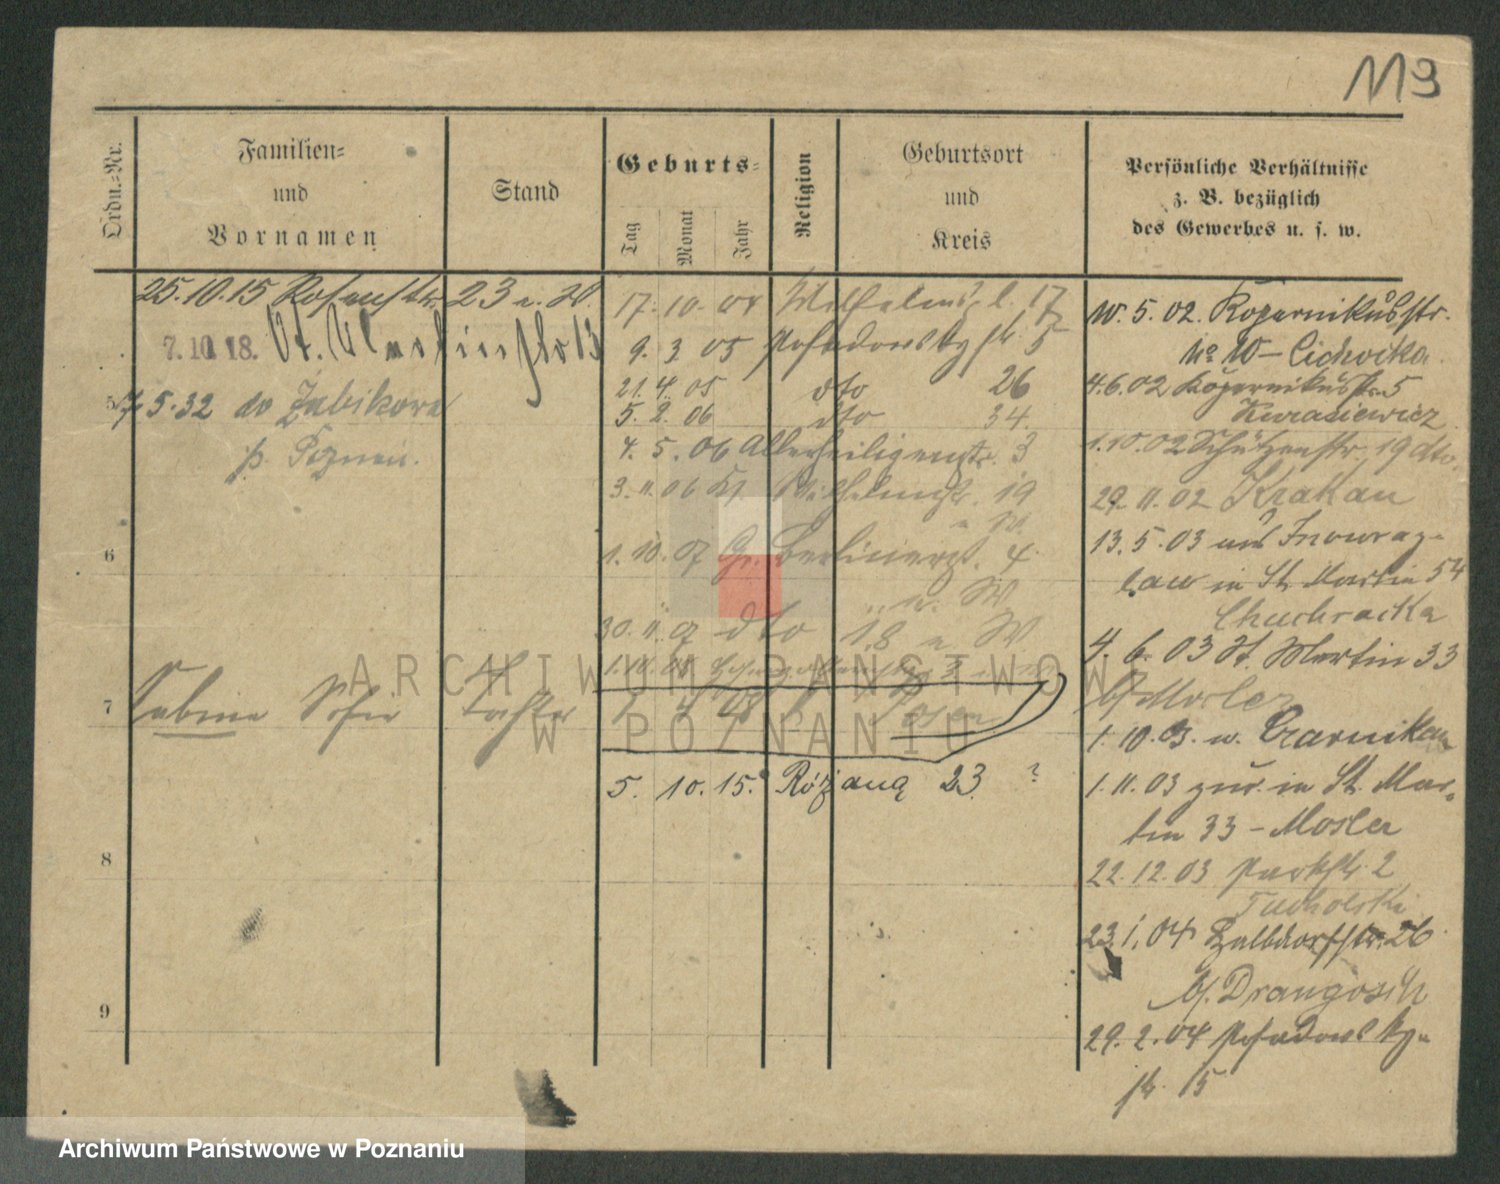 119
Ordn.-Nr.
Familien-
und
Vornamen
Stand
Geburts-
Tag
Monat
Jahr
Religion
Geburtsort
und
Kreis
Persönliche Verhältnisse
z. B. bezüglich
des Gewerbes u. s. w.
25.10.15 Rosenstr. 23 u. W.
7.10.18. St. Martinstr 13
7.5.32 do Żabikowa
p. Poznań.
17. 10. 04 Wilhelmspl. 17
9. 3. 05 Posadowskystr. 5
21. 4. 05 dto 26
5. 2. 06 dto 34.
4. 5. 06 Allerheiligenstr. 3
3. 11. 06 Kl. 19
1. 10. 07 Gr. Berlinerstr. 4
u. W
30. 11. 07 dto 18 u W
6
7
Sabine Sofie Tochter
Posen
5. 10. 15. Różana 23 ?
8
9
10. 5. 02. Kopernikusstr.
No 10 – Cichocka
4.6.02 Kopernikusstr. 5
Kurasiewicz
1.10.02 Schützenstr. 19 dto.
29. 11. 02 Krakau
13. 5. 03 aus Inowraz-
law in St. Martin 54
4. 6. 03 St. Martin 33
b/ Mosler
1. 10. 03. n. Czarnikau
1. 11. 03 zur. in St. Mar-
tin 33 – Mosler
22. 12. 03 Parkstr. 2
Tucholski
23. 1. 04 Halbdorfstr. 26
b/. Drangosch
29. 2. 04 Posadowsky-
str. 15
ARCHIWUM PAŃSTWOWE
W POZNANIU
Archiwum Państwowe w Poznaniu